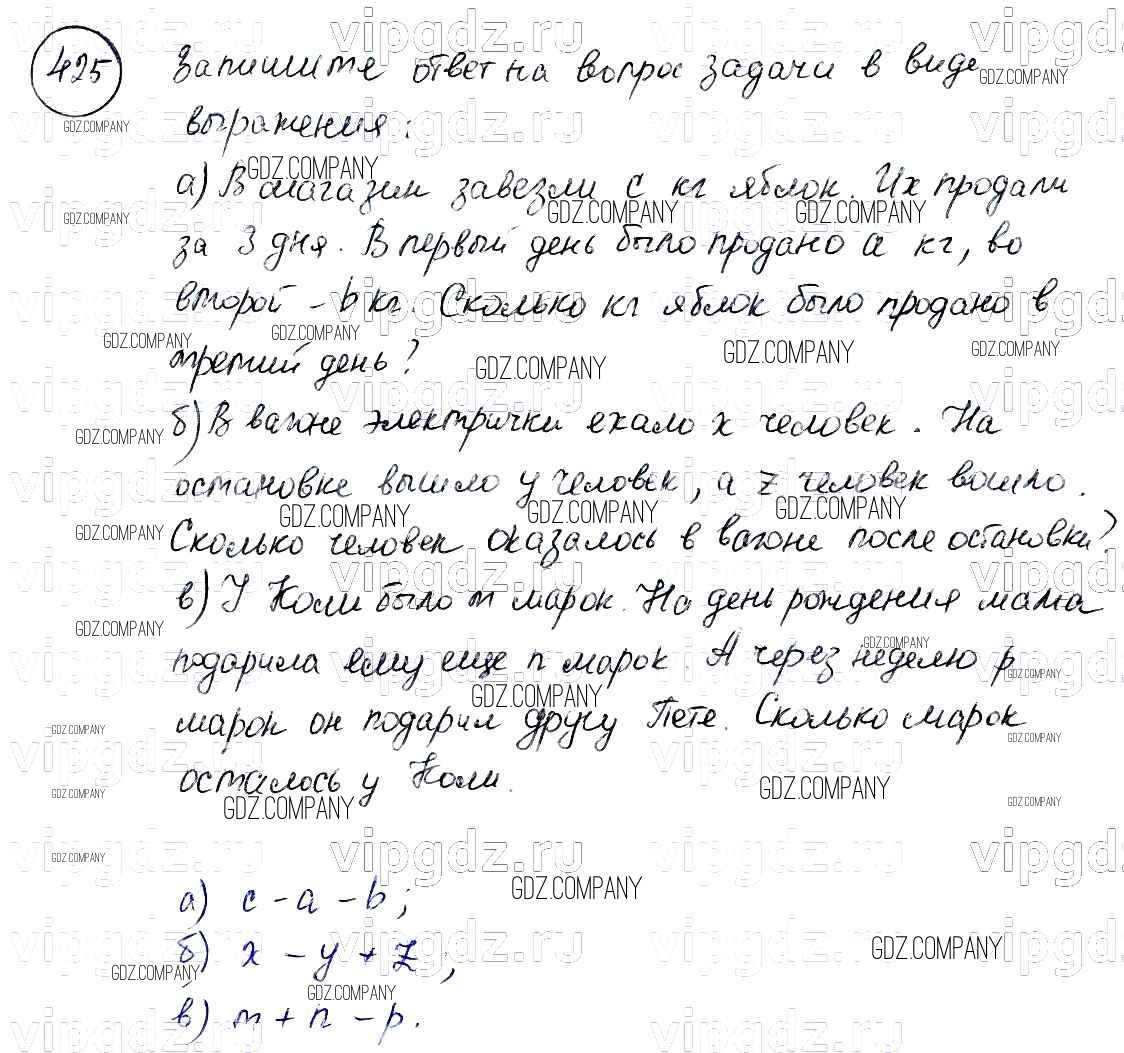 425 Запишите ответ на вопрос задачи в виде
выражения:
а) В магазин завезли c кг яблок. Их продали
за 3 дня. В первый день было продано a кг, во
второй - b кг. Сколько кг яблок было продано в
третий день?
б) В вагоне электрички ехало x человек. На
остановке вышло y человек, а z человек вошло.
Сколько человек оказалось в вагоне после остановки?
в) У Коли было m марок. На день рождения мама
подарила ему еще n марок. А через неделю p
марок он подарил другу Пете. Сколько марок
осталось у Коли.
а) c - a - b;
б) x - y + z;
в) m + n - p.
vipgdz.ru
GDZ.COMPANY